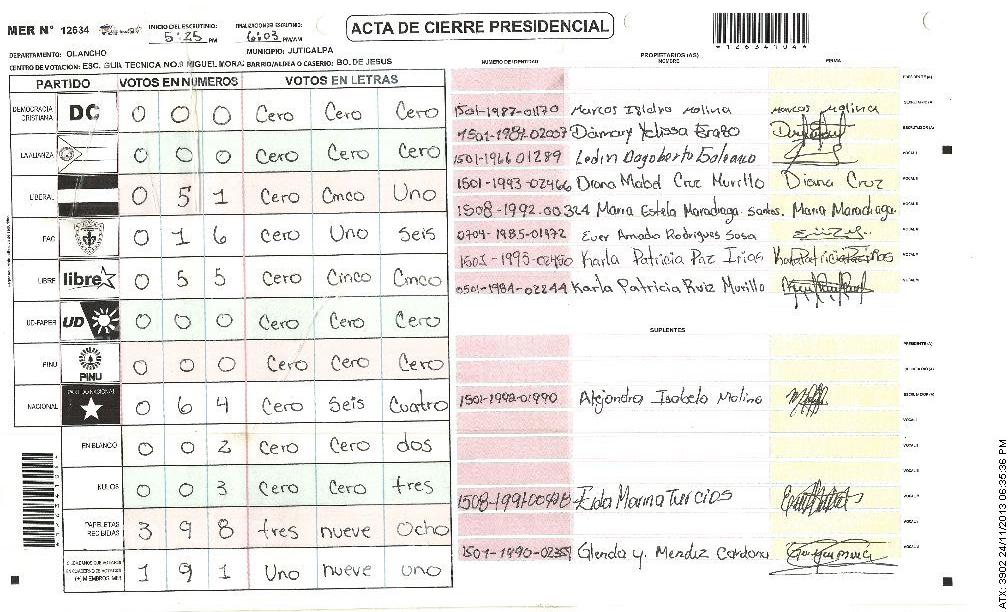 MER N° 12634 INICIO DEL ESCRUTINIO: 5:25 PM FINALIZACION DE ESCRUTINIO: 6:03 PM/AM ACTA DE CIERRE PRESIDENCIAL
*12634104*
DEPARTAMENTO: OLANCHO MUNICIPIO: JUTICALPA
CENTRO DE VOTACION: ESC. GUIA TECNICA NO.9 MIGUEL MORA: BARRIO/ALDEA O CASERIO: BO. DE JESUS
PARTIDO VOTOS EN NUMEROS VOTOS EN LETRAS
DEMOCRACIA CRISTIANA DC 0 0 0 Cero Cero Cero
LA ALIANZA 0 0 0 Cero Cero Cero
LIBERAL 0 5 1 Cero Cinco Uno
PAC 0 1 6 Cero Uno Seis
LIBRE libre 0 5 5 Cero Cinco Cinco
UD-FAPER UD 0 0 0 Cero Cero Cero
PINU PINU 0 0 0 Cero Cero Cero
NACIONAL PARTIDO NACIONAL 0 6 4 Cero Seis Cuatro
EN BLANCO 0 0 2 Cero Cero dos
NULOS 0 0 3 Cero Cero tres
PAPELETAS RECIBIDAS 3 9 8 tres nueve Ocho
CIUDADANOS QUE VOTARON EN CUADERNO DE VOTACION (+) MIEMBROS MER 1 9 1 Uno nueve uno
PROPIETARIOS (AS)
NUMERO DE IDENTIDAD NOMBRE FIRMA
PRESIDENTE (A)
1501-1987-01170 Marcos Isidro Molina Marcos Molina SECRETARIO (A)
1501-1981-02007 Damary Yelissa ESCRUTADOR (A)
1501-1966 01289 Ledin Dagoberto VOCAL I
1501-1993-02466 Diana Mabel Cruz Murillo Diana Cruz VOCAL II
1508-1992.00324 Maria Estela Maradiaga. Santos. Maria Maradiaga.
0704-1985-01472 Ever Amado Rodrigues Sosa
1501-1995-02450 Karla Patricia Paz Irias Karla Patricia Irias
0501-1984-02244 Karla Patricia Ruiz Murillo
SUPLENTES
PRESIDENTE (A)
SECRETARIO (A)
1501-1992-01990 Alejandra Isabela Molino ESCRUTADOR (A)
VOCAL I
VOCAL II
Elda Marina Turcios
Glenda y. Mendez Cardona
ATX: 3902 24/11/2013 06:35:36 PM